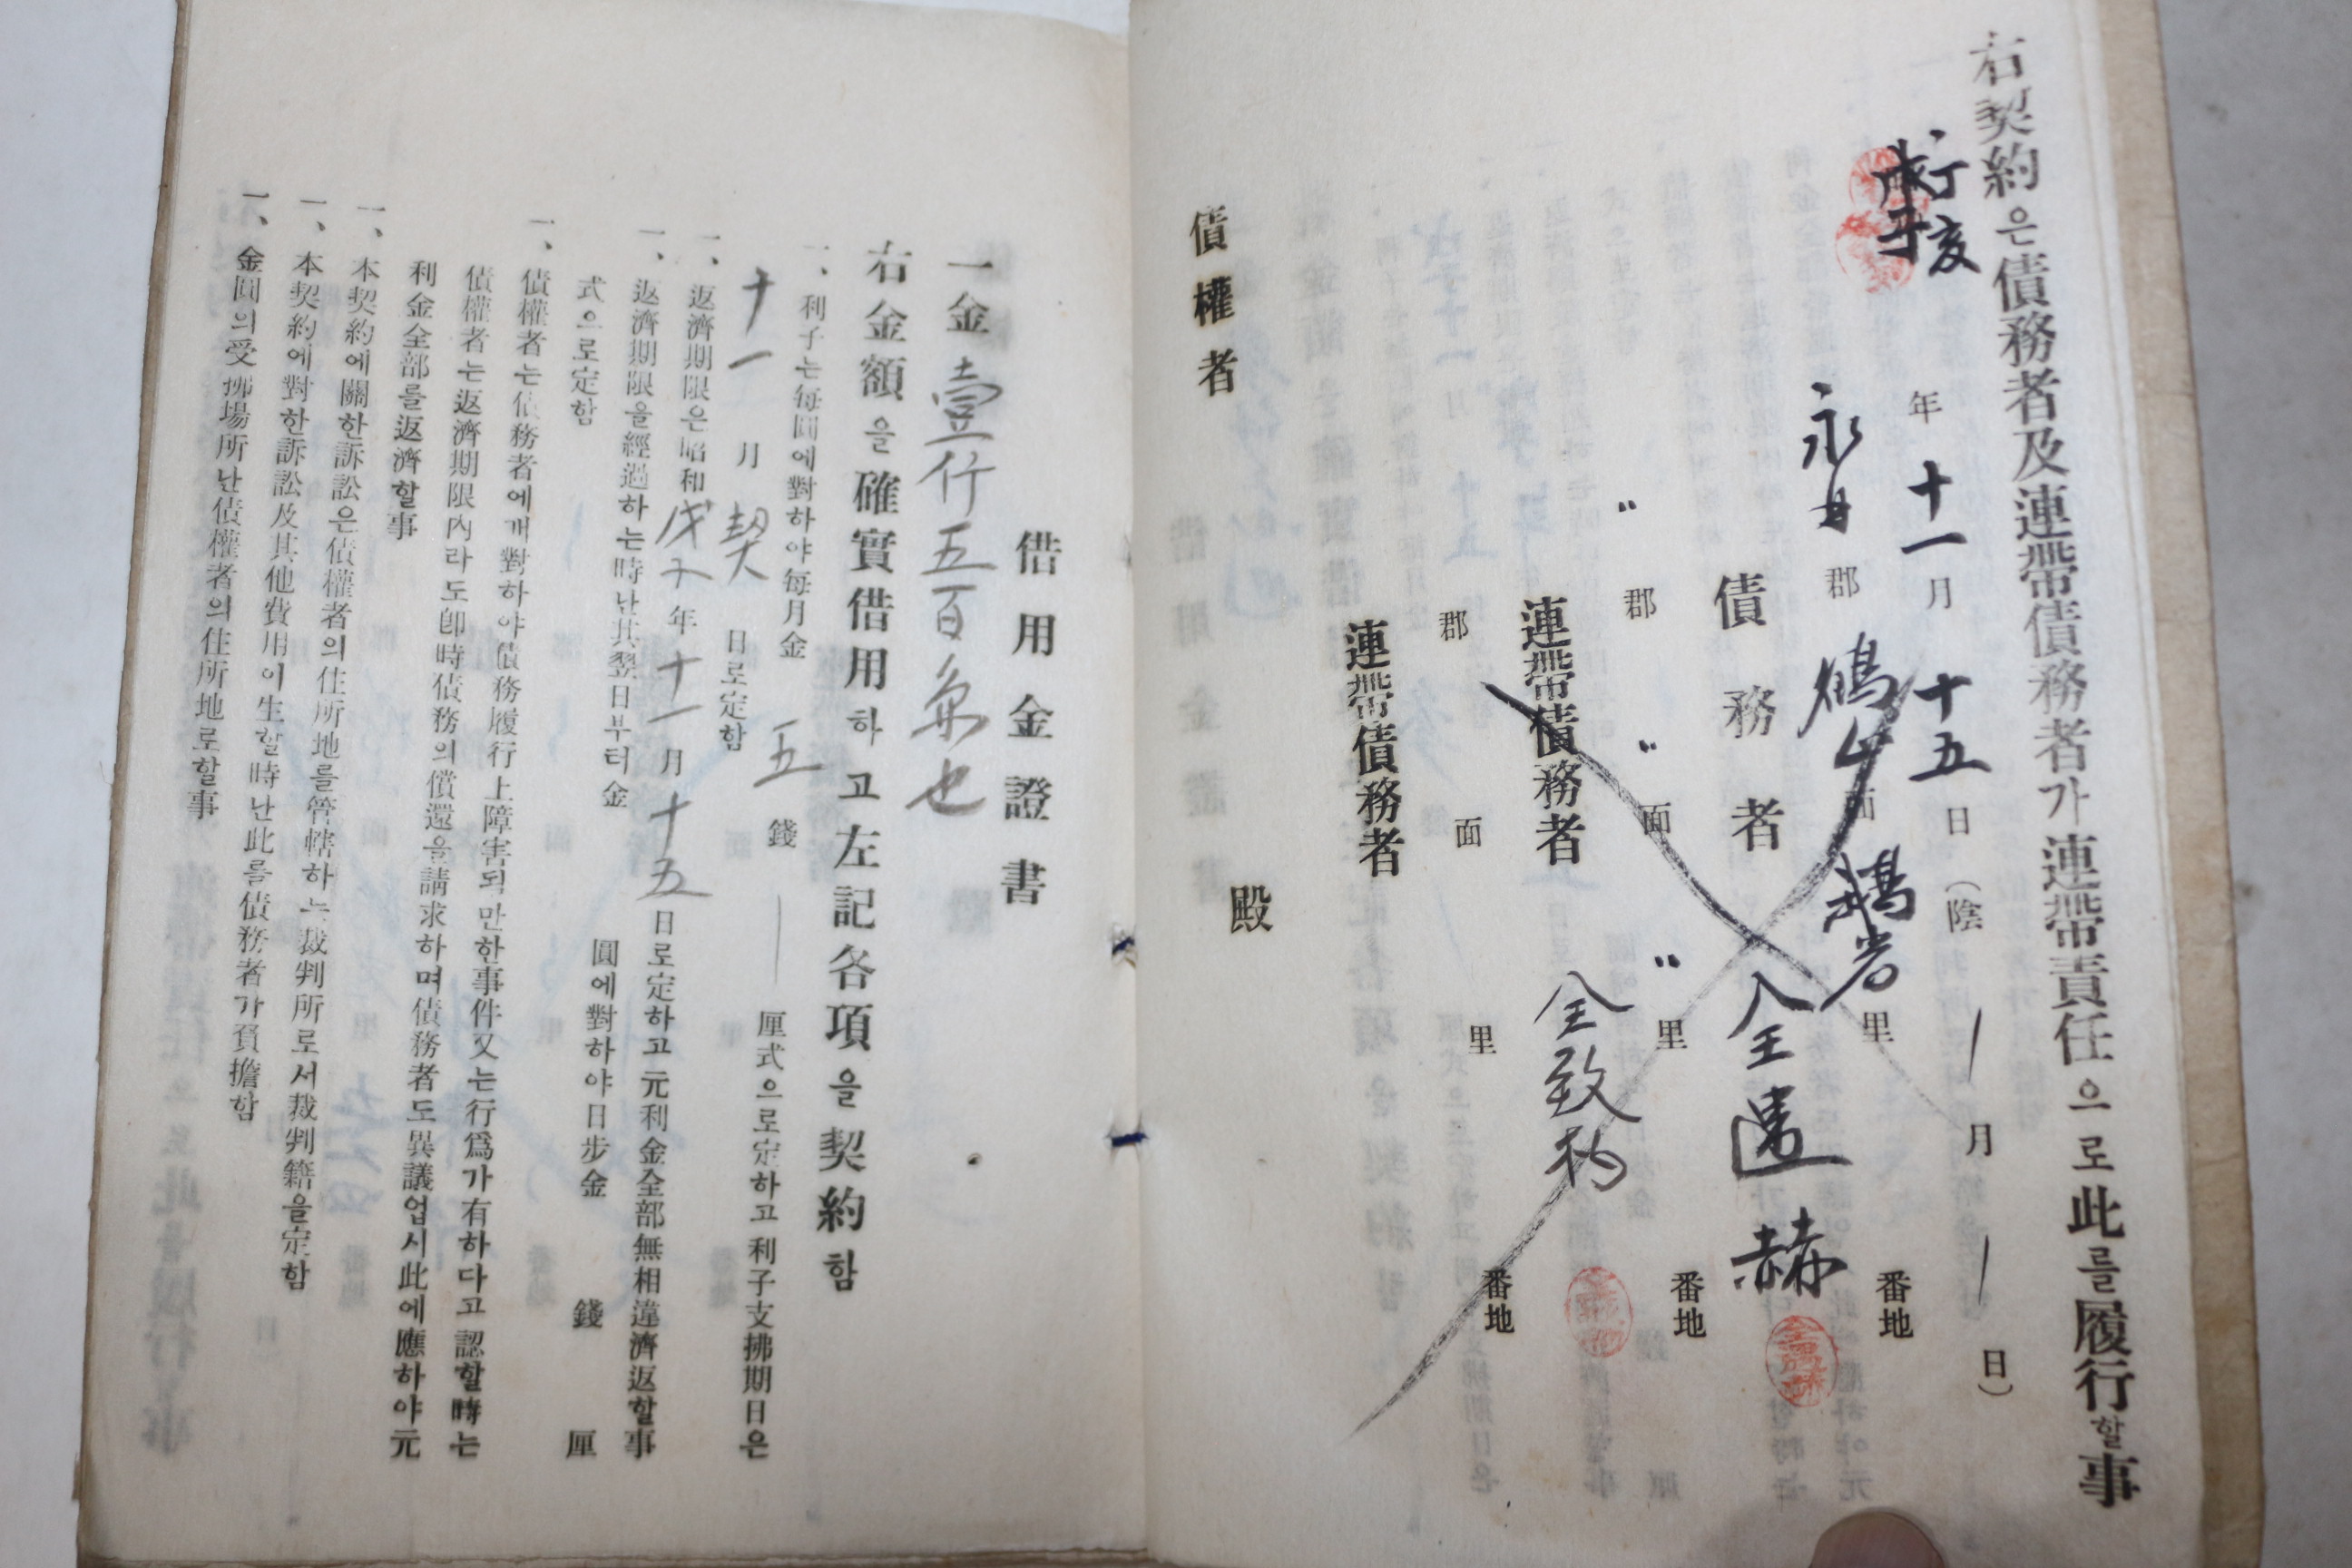 右契約은債務者及連帶債務者가連帶責任으로此를履行할事
丁亥年十一月十五日(陰 月 日)
郡 面 里 番地
債務者
〃郡〃面〃里 番地
連帶債務者 全致
郡 面 里 番地
連帶債務者
債權者 殿
借用金證書
一金壹仟五百 也
右金額을確實借用하고左記各項을契約함
一、利子는每圓에對하야每月金五錢 厘式으로定하고利子支拂期日은
十一月 契 日로定함
一、返濟期限은昭和戊子年十一月十五日로定하고元利金全部無相違濟返할事
一、返濟期限을經過하는時난其翌日부터金 圓에對하야日步金 錢 厘
式으로定함
一、債權者는債務者에개對하야債務履行上障害되만한事件又는行爲가有하다고認할時는
債權者는返濟期限內라도卽時債務의償還을請求하며債務者도異議업시此에應하야元
利金全部를返濟할事
一、本契約에關한訴訟은債權者의住所地를管轄하는裁判所로서裁判籍을定함
一、本契約에對한訴訟及其他費用이生할時난此를債務者가負擔함
一、金圓의受拂場所난債權者의住所地로할事